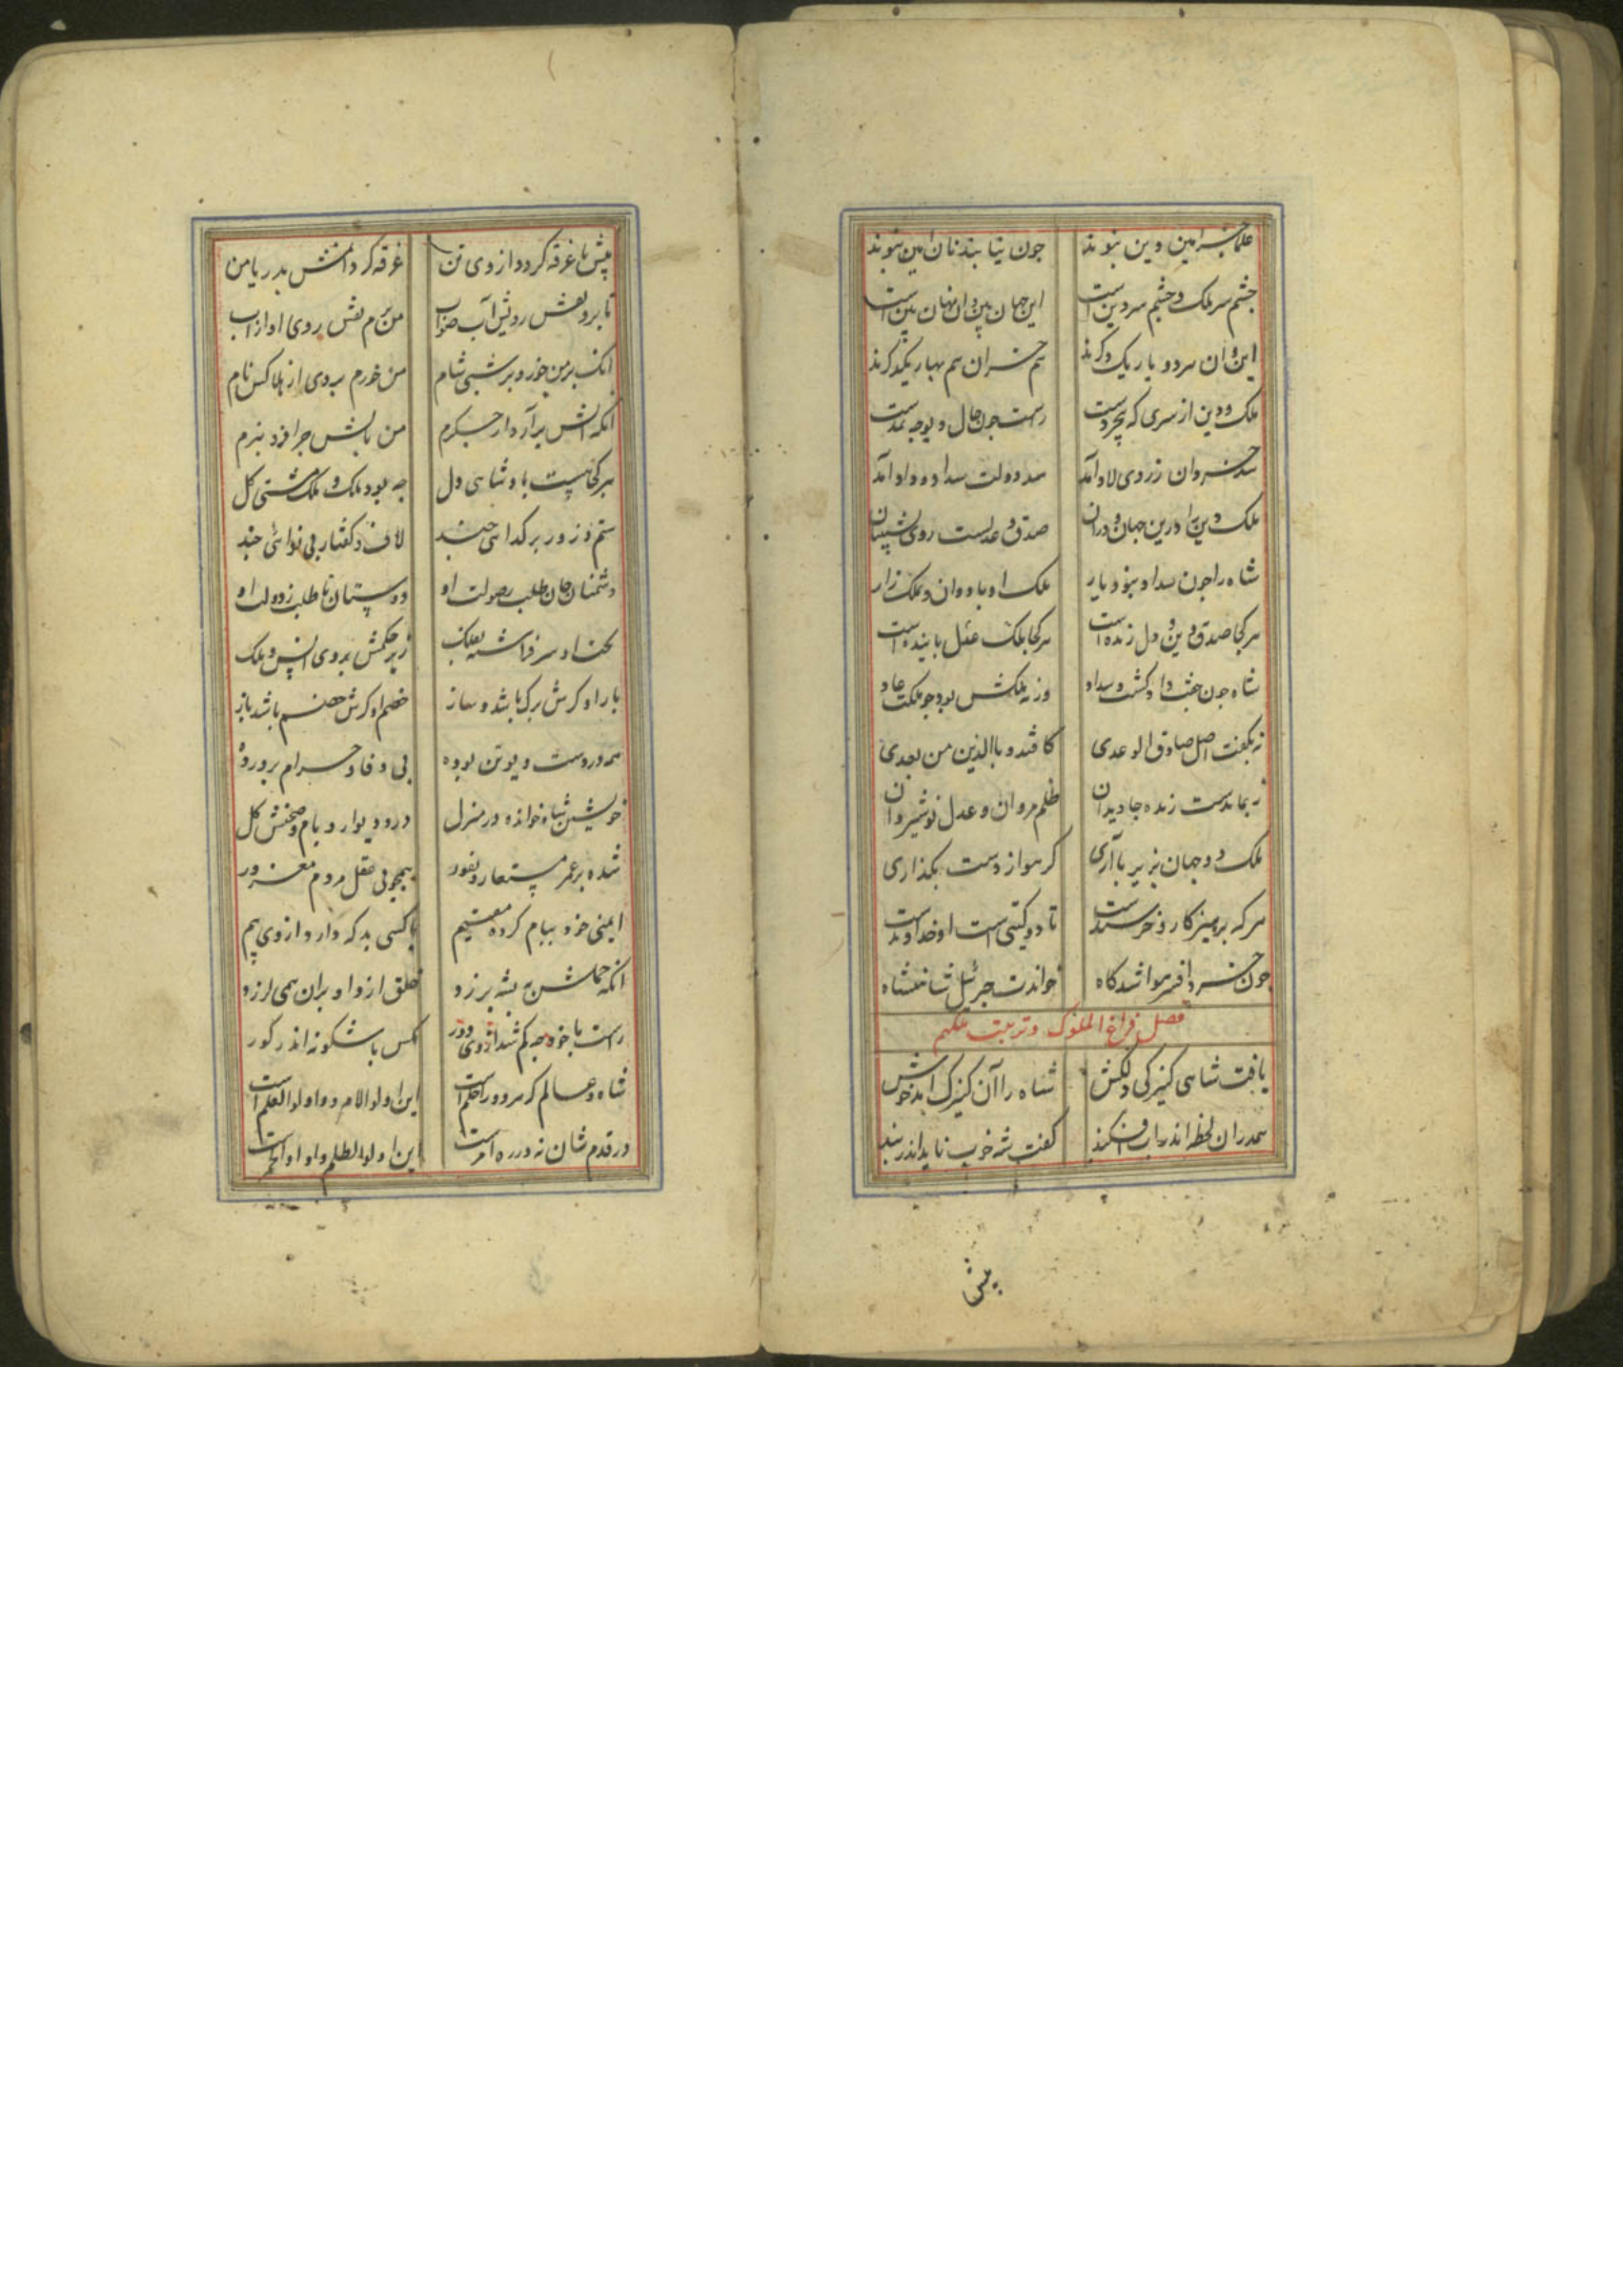 علما جز امین دین نبوند چون نیابند نان امین نبوند
چشم سر ملک و چشم سر دین است این جهان بین و آن نهان بین است
این و آن هر دو یار یکدگرند هم خزان هم بهار یکدگرند
ملک و دین از سری که بخردست راست چون حال و
خسروان ز روی لاد آمد سد دولت سداد و داد آمد
ملک و دین را درین جهان و در آن صدق و عدلست روی
شاه را چون سداد نبود یار ملک او باد دان و ملک زار
هر کجا صدق و دین و دل زنده است هر کجا ملک عدل پاینده است
شاه چون جفت داد گشت و سداد ورنه ملکش بود چو ملکت عاد
نه بگفت اصل صادق الوعدی کاقتدوا باالذین من بعدی
نه بماندست زنده جاویدان ظلم مروان و عدل نوشیروان
ملک دو جهان بزیر پا آری گر هوا از دست بگذاری
هر که پرهیزکار و خرسندست تا دو گیتی است او خداوندست
چون خرد افسر هوا شد گاه خواندت جبرئیل شاهنشاه
فصل فراغ الملوک و تربیت ملکهم
یافت شاهی کنیزکی دلکش شاه را آن کنیزک آمد خوش
هم در آن لحظه اندر آب افکند گفت شه خوب ناید اندر بند
پیش
پیش تا غرقه گردد از وی تن غرقه کردمش بدریا من
تا برد نقش رویش آب صواب من برم نقش روی او از آب
آنک بر من خورد بر شبی شام من خورم بدوی از هلاکش نام
آنکه آتش برآرد از جگرم من بآتش چرا فرو نبرم
هر کجا هست پادشاهی دل چه بود ملک و ملک مشتی گل
ستم و زور بر گدایی چند لاف و گفتار بی نوائی چند
دشمنان جان طلب ز صولت او دوستان نان طلب ز دولت او
بخت او سر فراشته بفلک زیر حکمش بروی انس و ملک
یار او گرش برگ باشد و ساز خصم او گرش خصم باشد باز
همه دروست و بوتن بوده بی وفا و حرام پرورده
خویشتن شاه خوانده در منزل در و دیوار و بام و صحنش گل
شده بر عمر مستعار نفور همچو بی عقل مردم مغرور
ایمنی خود ببام کرده مقیم با کسی بد که دارد از وی بیم
آنکه جمله شب به پشه برزد خلق از او بران همی لرزد
راست با خود چه کم شد از وی دور کس باشگونه اندر گور
شاه و عالم که هر دو را حلم است این اولوالامر و او اولوالعلم است
در قدم شان نه در ره امرست این اولوا لظلم و او